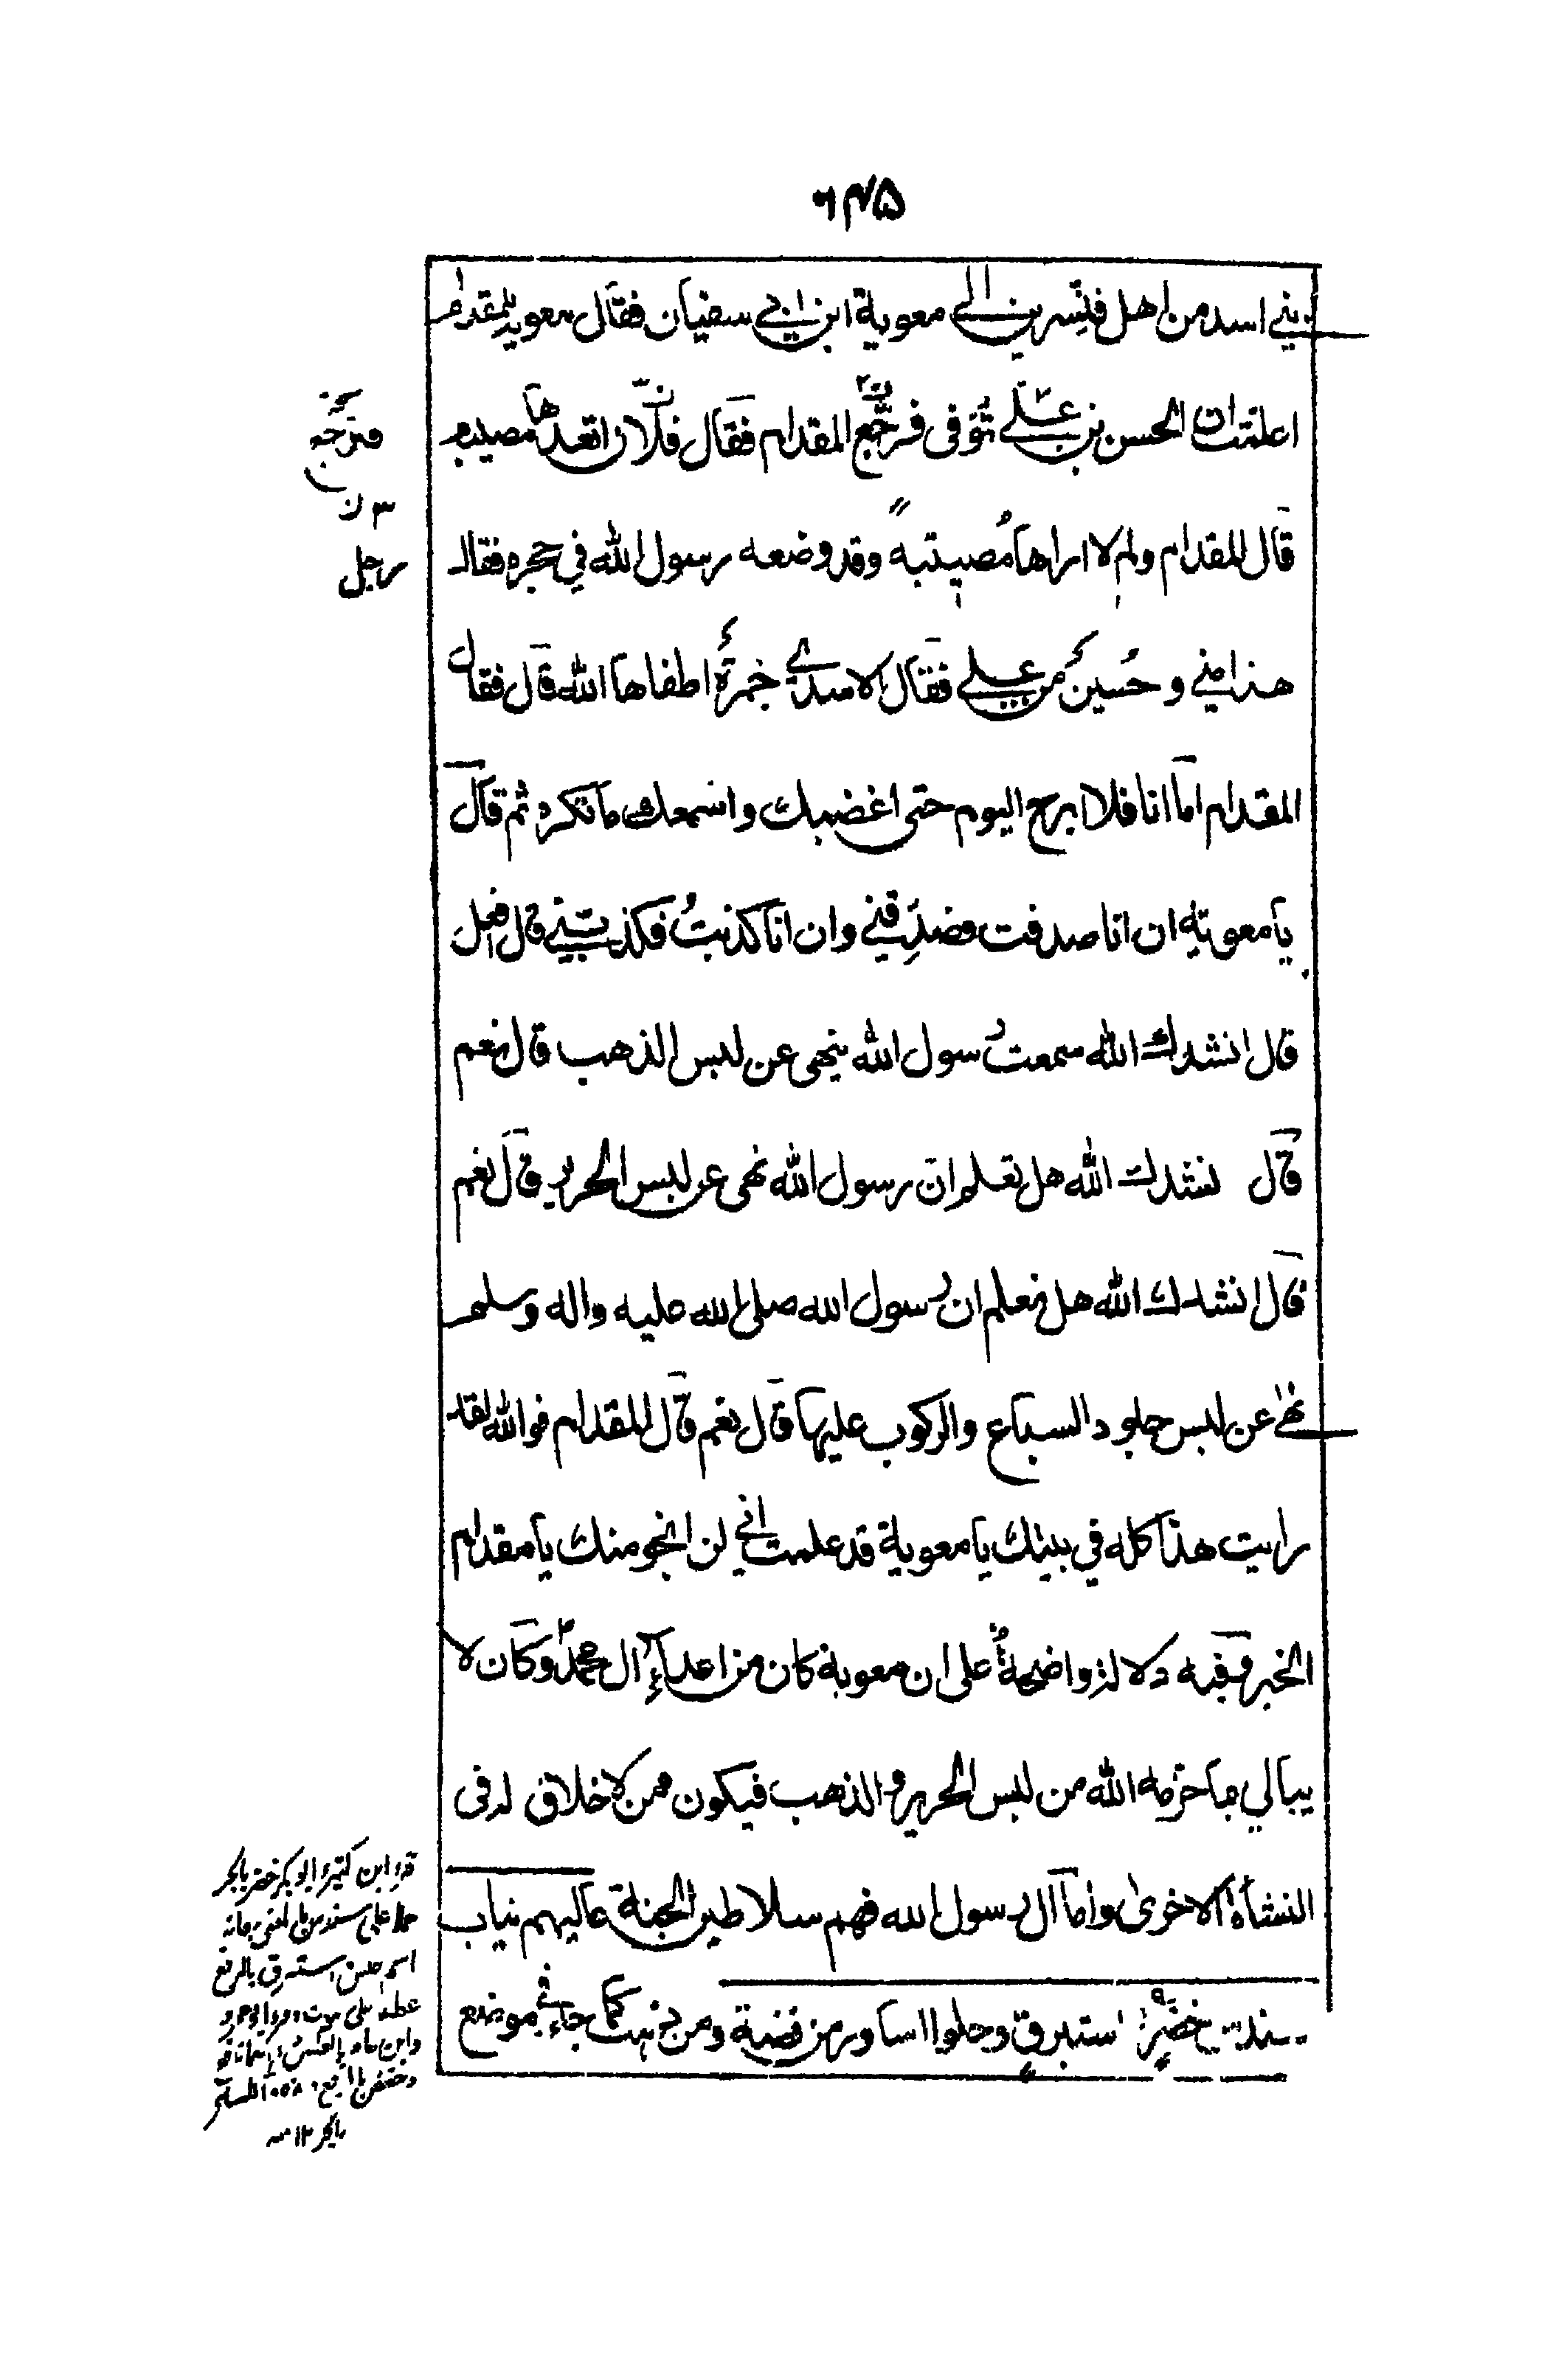 ٦٣٥
بني اسد من اهل قنسرين الى معوية ابن ابي سفيان فقال معوية للمقدام
اعلمت ان الحسن بن علي توفى فرجع المقدام فقال فلان اتعدها مصيبة
قال المقدام ولم لا اراها مصيبة وقد وضعه رسول الله في حجره فقال
هذا مني وحسين من علي فقال الاسدي جمرة اطفاها الله قال فقال
المقدام اما انا فلا ابرح اليوم حتى اغضبك واسمعك ما تكره ثم قال
يا معوية ان انا صدقت فصدقني وان انا كذبت فكذبني قال افعل
قال انشدك الله سمعت رسول الله ينهى عن لبس الذهب قال نعم
قال نشدك الله هل تعلم ان رسول الله نهى عن لبس الحرير قال نعم
قال انشدك الله هل تعلم ان رسول الله صلى الله عليه واله وسلم
نهى عن لبس جلود السباع والركوب عليها قال نعم قال المقدام فوالله لقد
رايت هذا كله في بيتك يا معوية قد علمت اني لن انجو منك يا مقدام
الخبر وفيه دلالة واضحة على ان معوية كان من اعداء ال محمد وكان لا
يبالي ما حرمه الله من لبس الحرير والذهب فيكون ممن لا خلاق له في
النشأة الاخرى واما آل رسول الله فهم سلاطين الجنة عاليهم ثياب
سندس خضر استبرق وحلوا اساور من فضة ومن ذهب كما جاء في موضع
نسخة
فترجه
٣ ن
رجل
قرء ابن كثير وابو بكر خضر بالجر
حملا على سندس
اسم جنس استبرق بالرفع
بالجر ١٢ منه